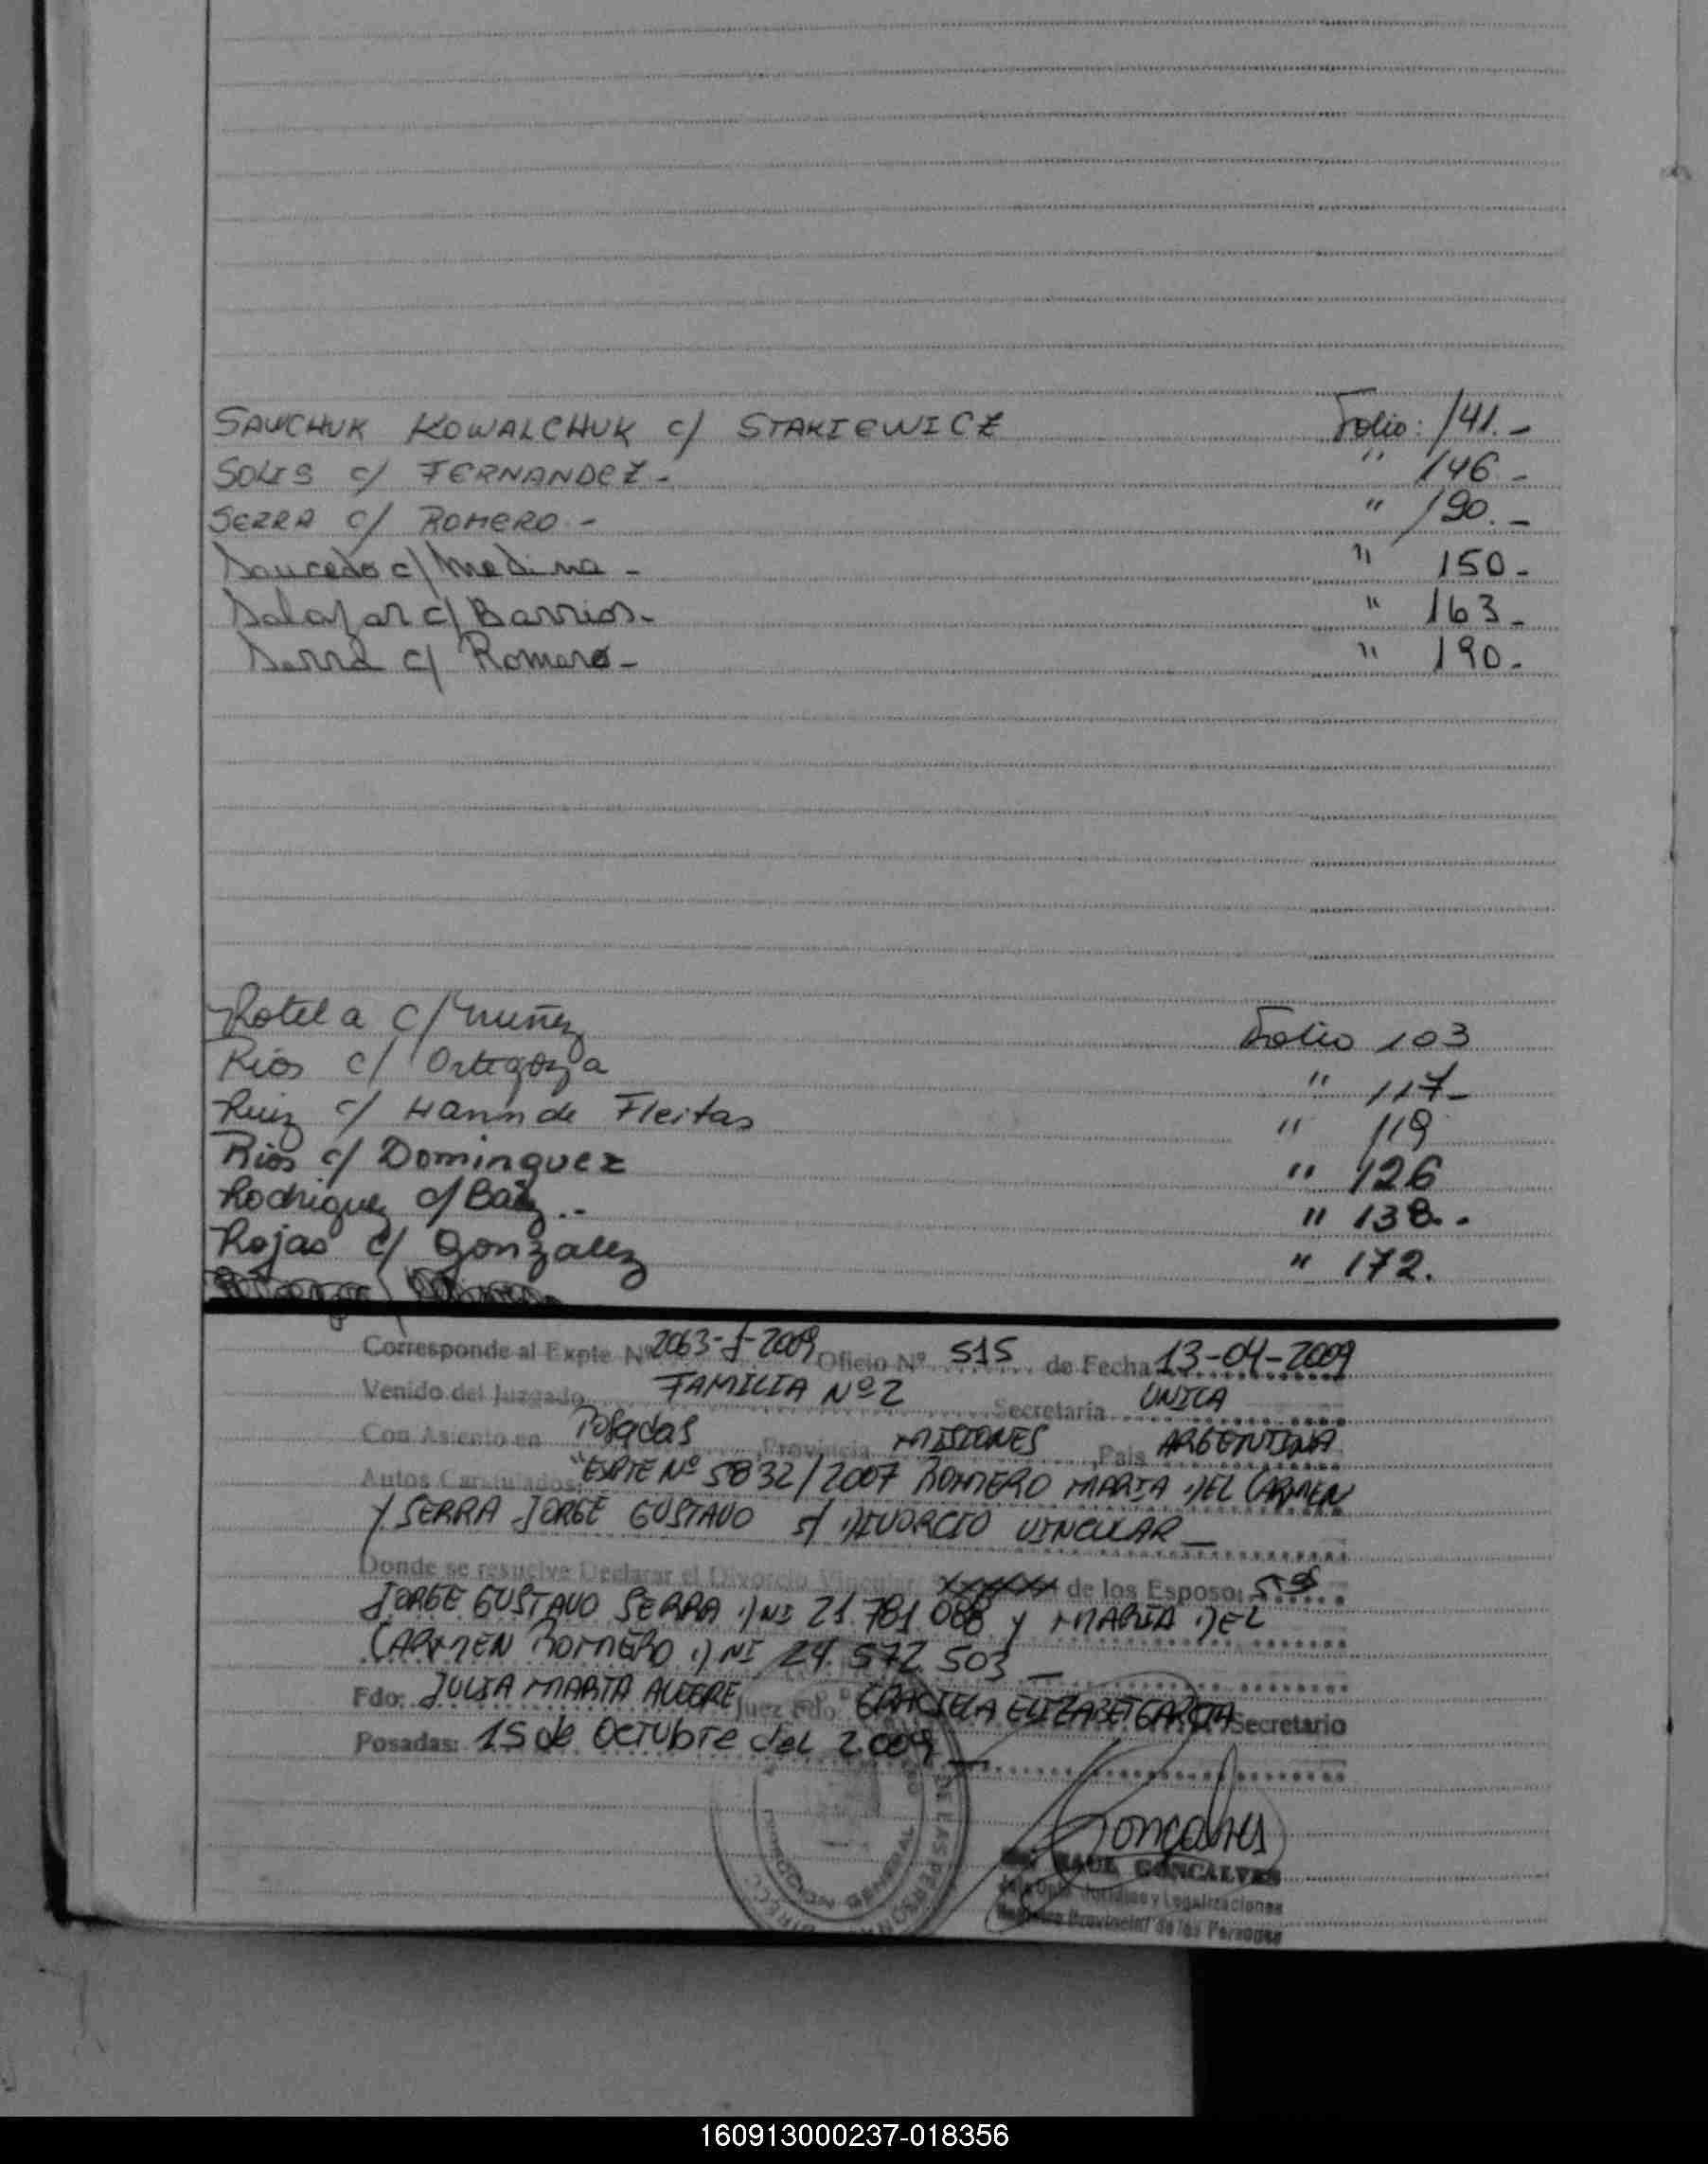 SAUCHUK KOWALCHUK c/ STAKIEWICZ Folio: 141.-
SOLIS c/ FERNANDEZ.- " 146.-
SERRA c/ ROMERO.- " 190.-
Saucedo c/ Medina - " 150-
Salazar c/ Barrios.- " 163-
Serra c/ Romero- " 190-
Rotela c/ Nuñez Folio 103
Rios c/ Ortegoza " 117-
Ruiz c/ Hann de Fleitas " 119
Rios c/ Dominguez " 126
Rodriguez c/ Baez.- " 138.-
Rojas c/ Gonzalez " 172.
Corresponde al Expte Nº 2063-J-2009 Oficio Nº 515 de Fecha 13-04-2009
Venido del Juzgado FAMILIA Nº 2 Secretaria UNICA
Con Asiento en Posadas, Provincia MISIONES, Pais ARGENTINA
Autos Caratulados: "EXPTE Nº 5832/2007 ROMERO MARIA DEL CARMEN
Y SERRA JORGE GUSTAVO s/ DIVORCIO VINCULAR
Donde se resuelve Declarar el Divorcio Vincular de los Esposo: S
JORGE GUSTAVO SERRA DNI 21.781.088 y MARIA DEL
CARMEN ROMERO DNI 24.572.503
Fdo: JULIA MARTA ALEGRE Juez Fdo: GRACIELA ELIZABET GARCIA Secretario
Posadas: 15 de Octubre del 2009
Goncalves
RAUL GONCALVES
Jefe Dpto. Juridico y Legalizaciones
Registro Provincial de las Personas
DIRECCION GENERAL
DE LAS PERSONAS
160913000237-018356